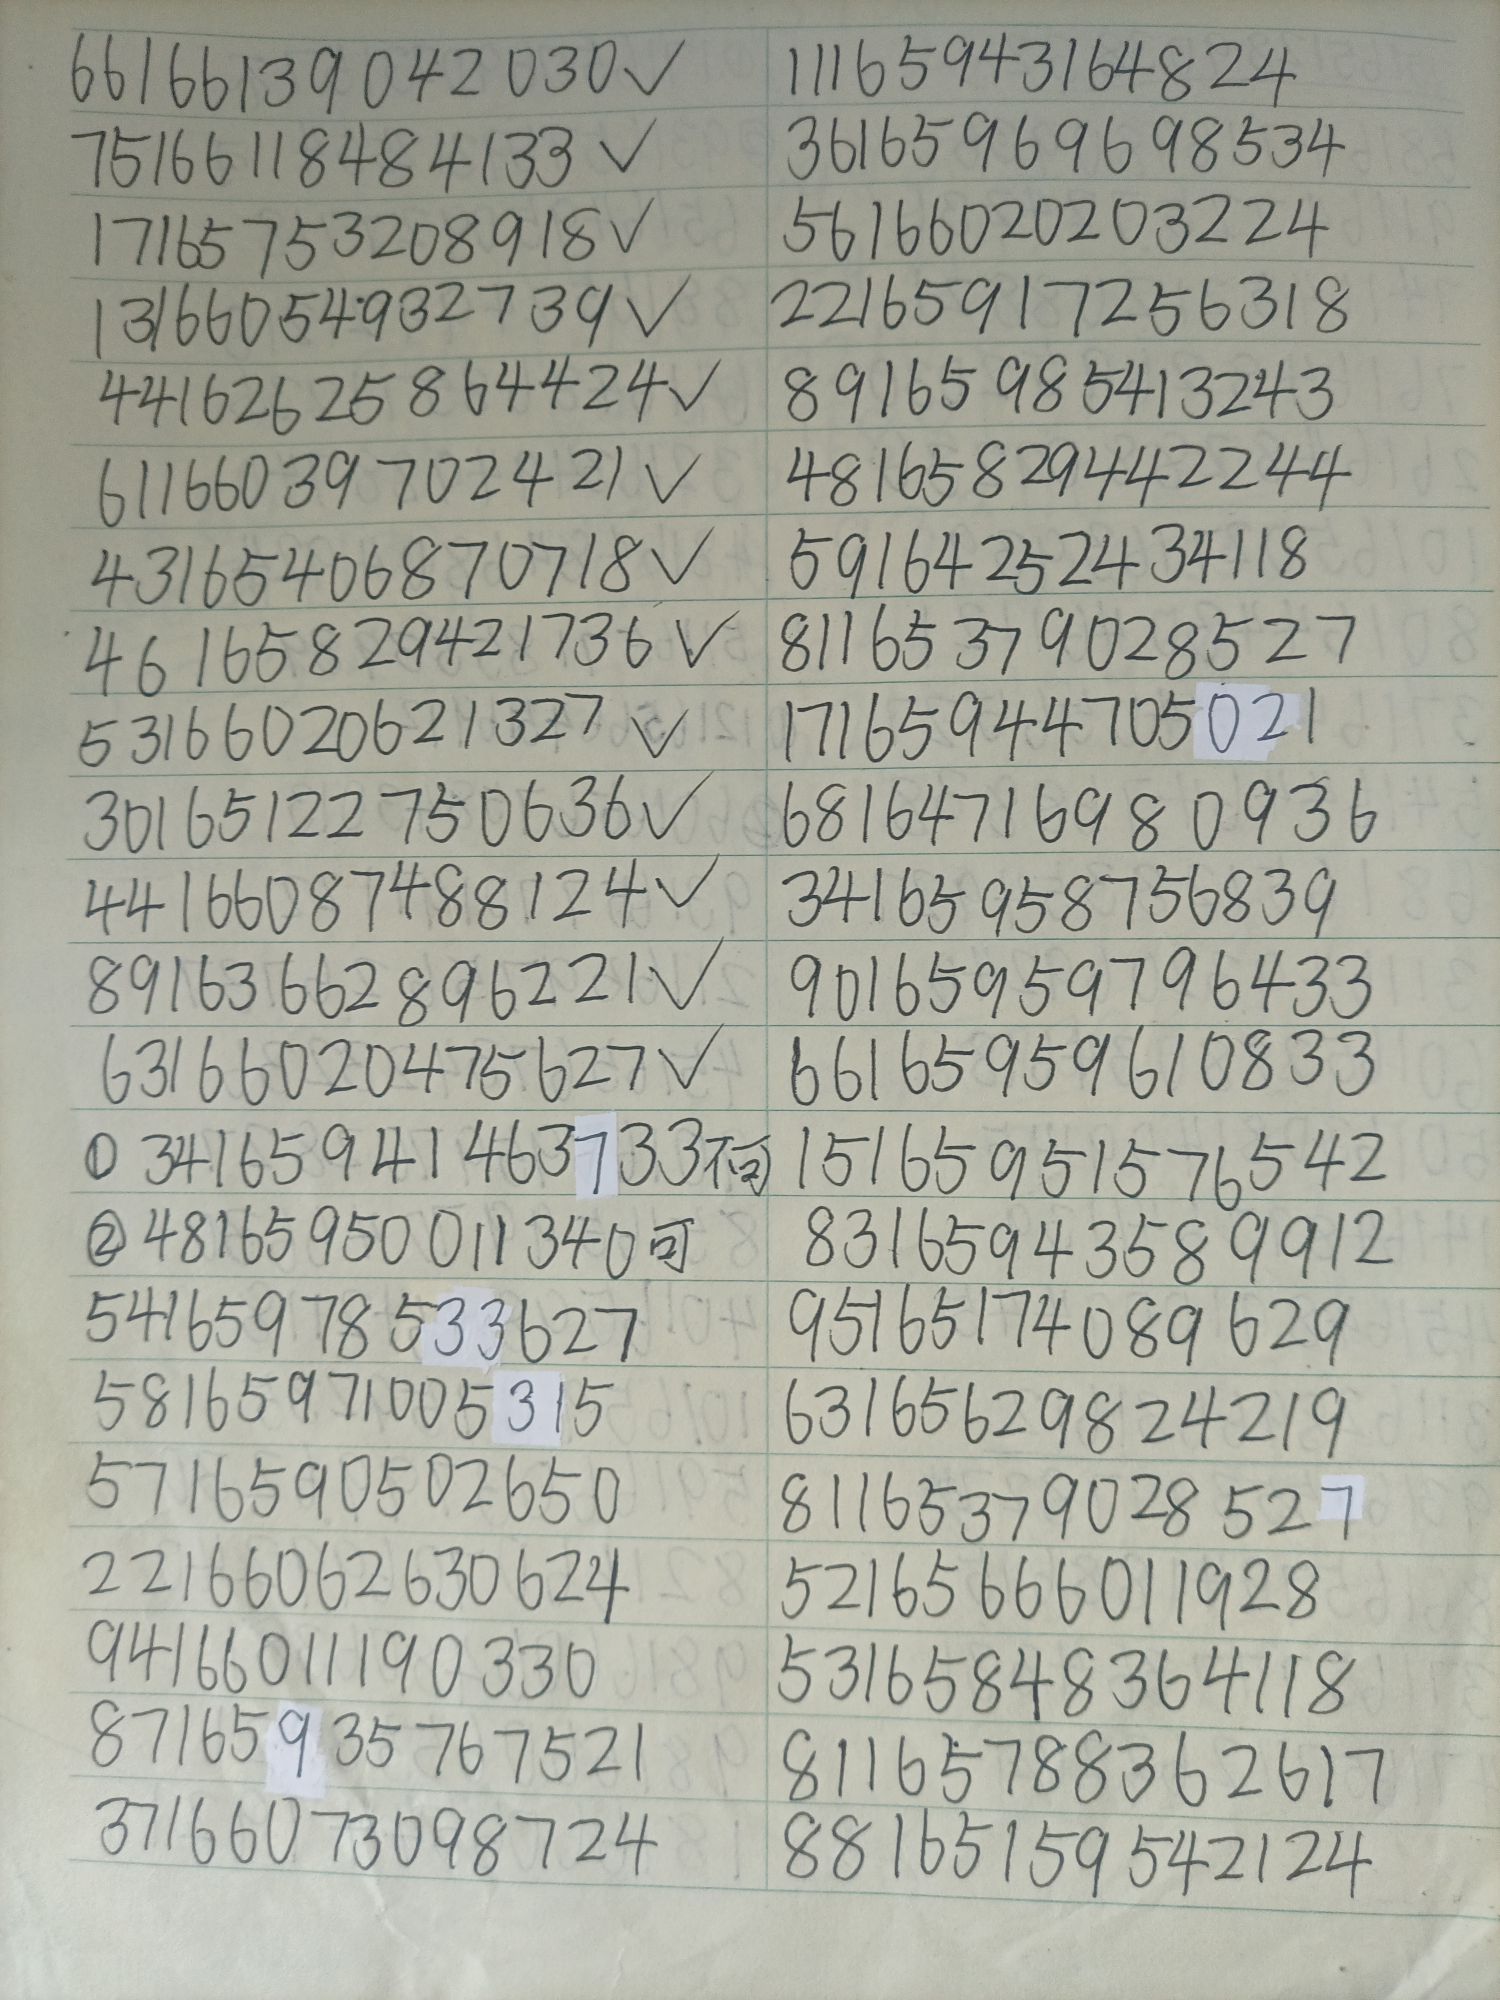 66166139042030✓
75166118484133✓
17165753208918✓
13166054932739✓
44162625864424✓
61166039702421✓
43165406870718✓
46165829421736✓
53166020621327✓
30165122750636✓
44166087488124✓
89163662896221✓
63166020475627✓
① 34165941463733不可
② 48165950011340可
54165978533627
58165971005315
57165905026​50
22166062630624
94166011190330
87165935767521
37166073098724
11165943164824
36165969698534
56166020203224
22165917256318
89165985413243
48165829442244
59164252434118
81165379028527
17165944705021
68164716980936
34165958756839
90165959796433
66165959610833
15165951576542
83165943589912
95165174089629
63165629824219
81165379028527
52165666011928
53165848364118
81165788362617
88165159542124